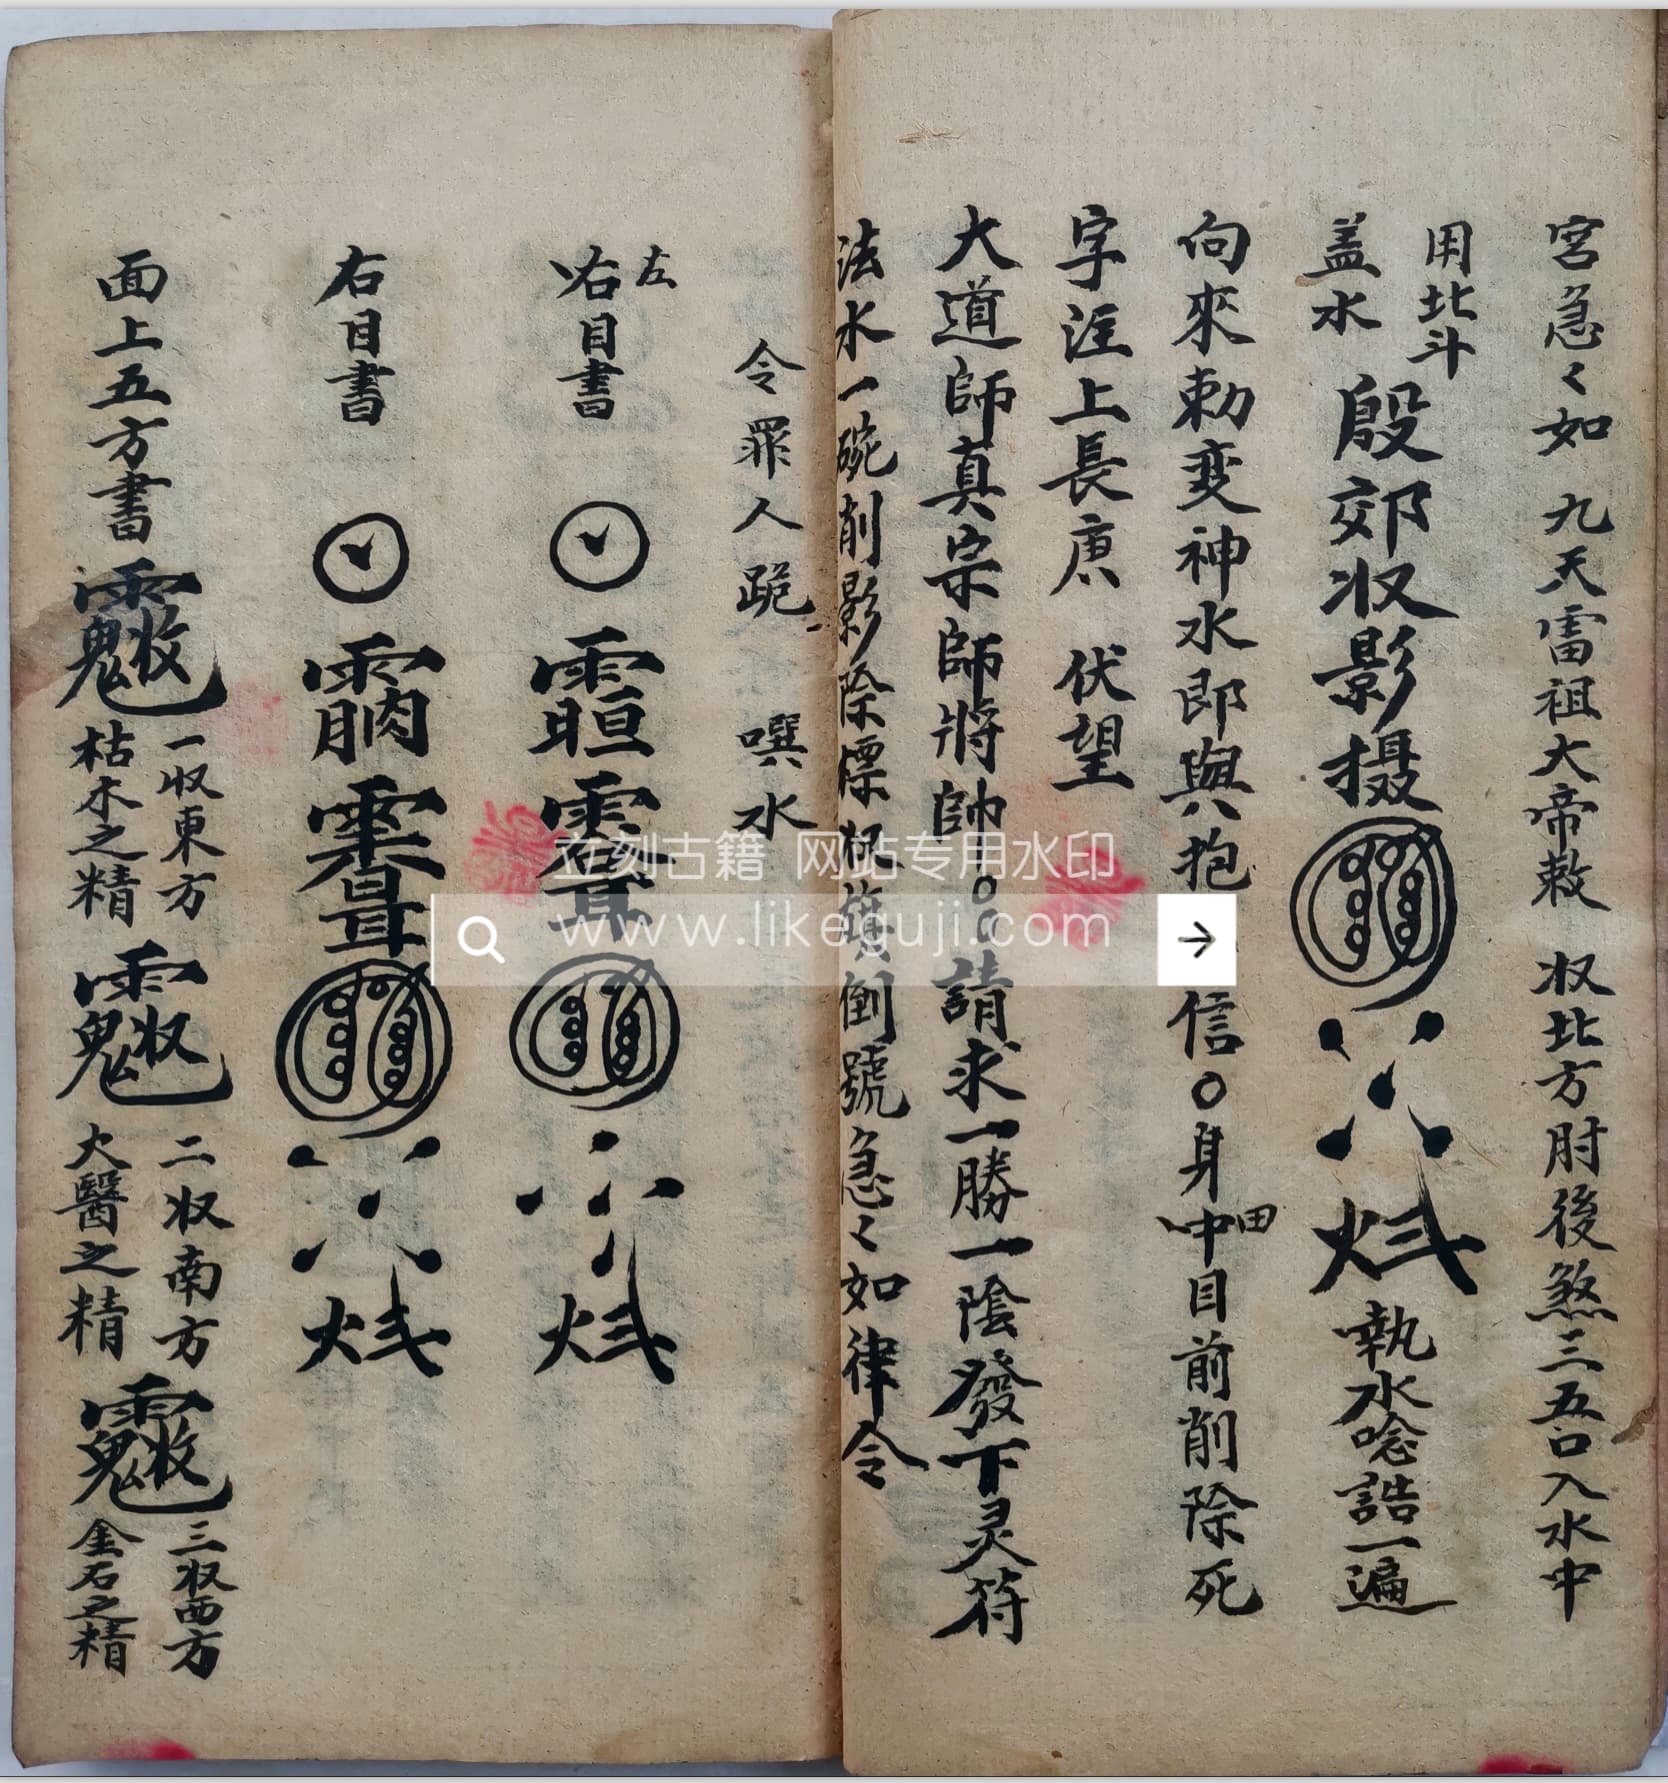 宫急〻如 九天雷祖大帝敕 收北方肘後煞三五口入水中
用北斗
盖水 殷郊收影摄 執水唸誥一遍
向來勅变神水即與抱 信〇身中田目前削除死
字注上長庚 伏望
大道師真宗師將帥 〇〇請求一勝一陰發下灵符
法水一碗削影除標 倒號急〻如律令
令罪人跪 噀水
左
右目書
右目書
面上五方書
一收東方
枯木之精
二收南方
火醫之精
三收西方
金石之精
立刻古籍 网站专用水印
www.likeguji.com